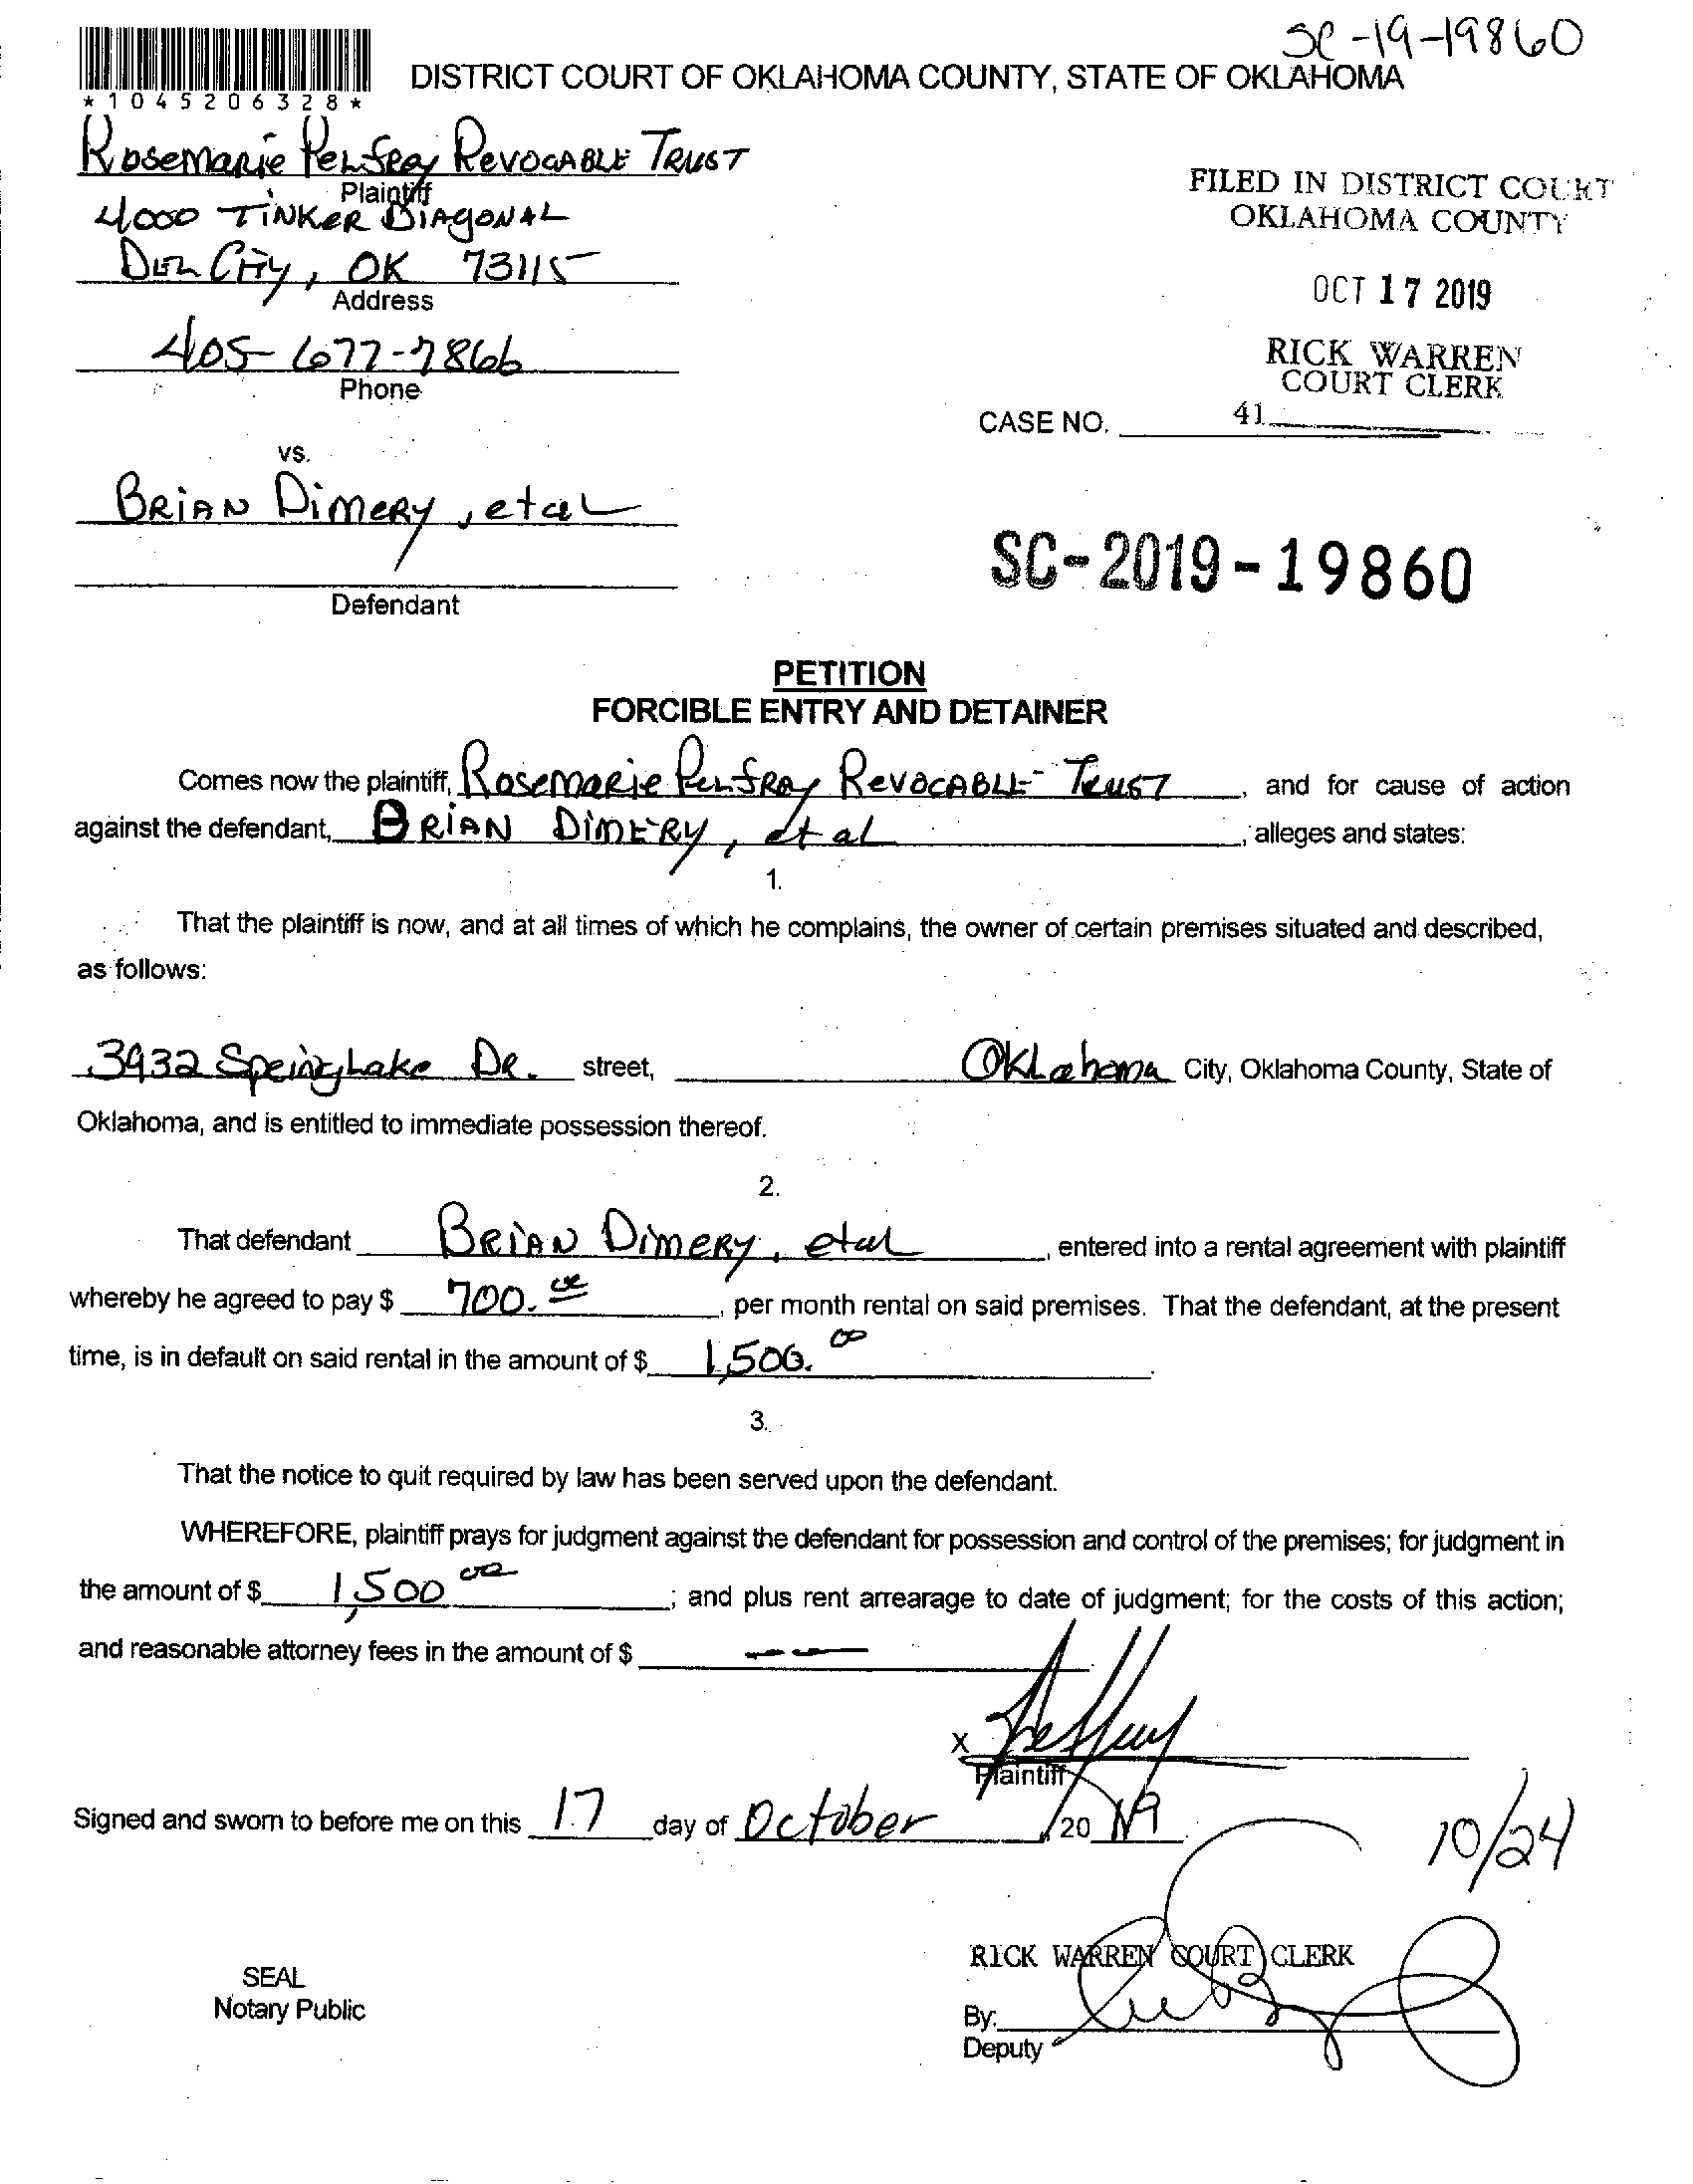 SC-19-19860
*1045206328*
DISTRICT COURT OF OKLAHOMA COUNTY, STATE OF OKLAHOMA
Rosemarie Penfray Revocable Trust
Plaintiff
4000 Tinker Diagonal
Del City, OK 73115
Address
405-677-7866
Phone
FILED IN DISTRICT COURT
OKLAHOMA COUNTY
OCT 17 2019
RICK WARREN
COURT CLERK
41
CASE NO.
vs.
Brian Dimery, etal
Defendant
SC-2019-19860
PETITION
FORCIBLE ENTRY AND DETAINER
Comes now the plaintiff, Rosemarie Penfray Revocable Trust, and for cause of action
against the defendant, Brian Dimery, et al, alleges and states:
1.
That the plaintiff is now, and at all times of which he complains, the owner of certain premises situated and described,
as follows:
3932 Springlake Dr. street, Oklahoma City, Oklahoma County, State of
Oklahoma, and is entitled to immediate possession thereof.
2.
That defendant Brian Dimery, etal, entered into a rental agreement with plaintiff
whereby he agreed to pay $ 700.00, per month rental on said premises. That the defendant, at the present
time, is in default on said rental in the amount of $ 1,500.00.
3.
That the notice to quit required by law has been served upon the defendant.
WHEREFORE, plaintiff prays for judgment against the defendant for possession and control of the premises; for judgment in
the amount of $ 1,500 00; and plus rent arrearage to date of judgment; for the costs of this action;
and reasonable attorney fees in the amount of $ --
X
Plaintiff
Signed and sworn to before me on this 17 day of October, 2019
10/24
RICK WARREN COURT CLERK
SEAL
Notary Public
By:
Deputy